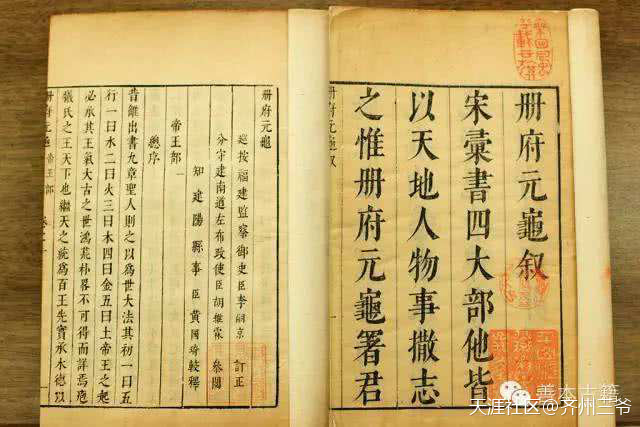 册府元龜叙
宋彙書四大部他皆
以天地人物事撒志
之惟册府元龜署君
册府元龜叙
册府元龜
巡按福建監察御史臣李嗣京 訂正
分守建南道左布政使臣胡維霖 參閱
知建陽縣事臣黃國琦較釋
帝王部
總序
昔雒出書九章聖人則之以爲世大法其初一曰五
行一曰水二曰火三曰木四曰金五曰土帝王之起
必承其王氣大古之世鴻荒朴畧不可得而詳焉庖
犧氏之王天下也繼天之統爲百王先實承木德以
册府元龜 帝王部
善本古籍
天涯社区@齐州三爷